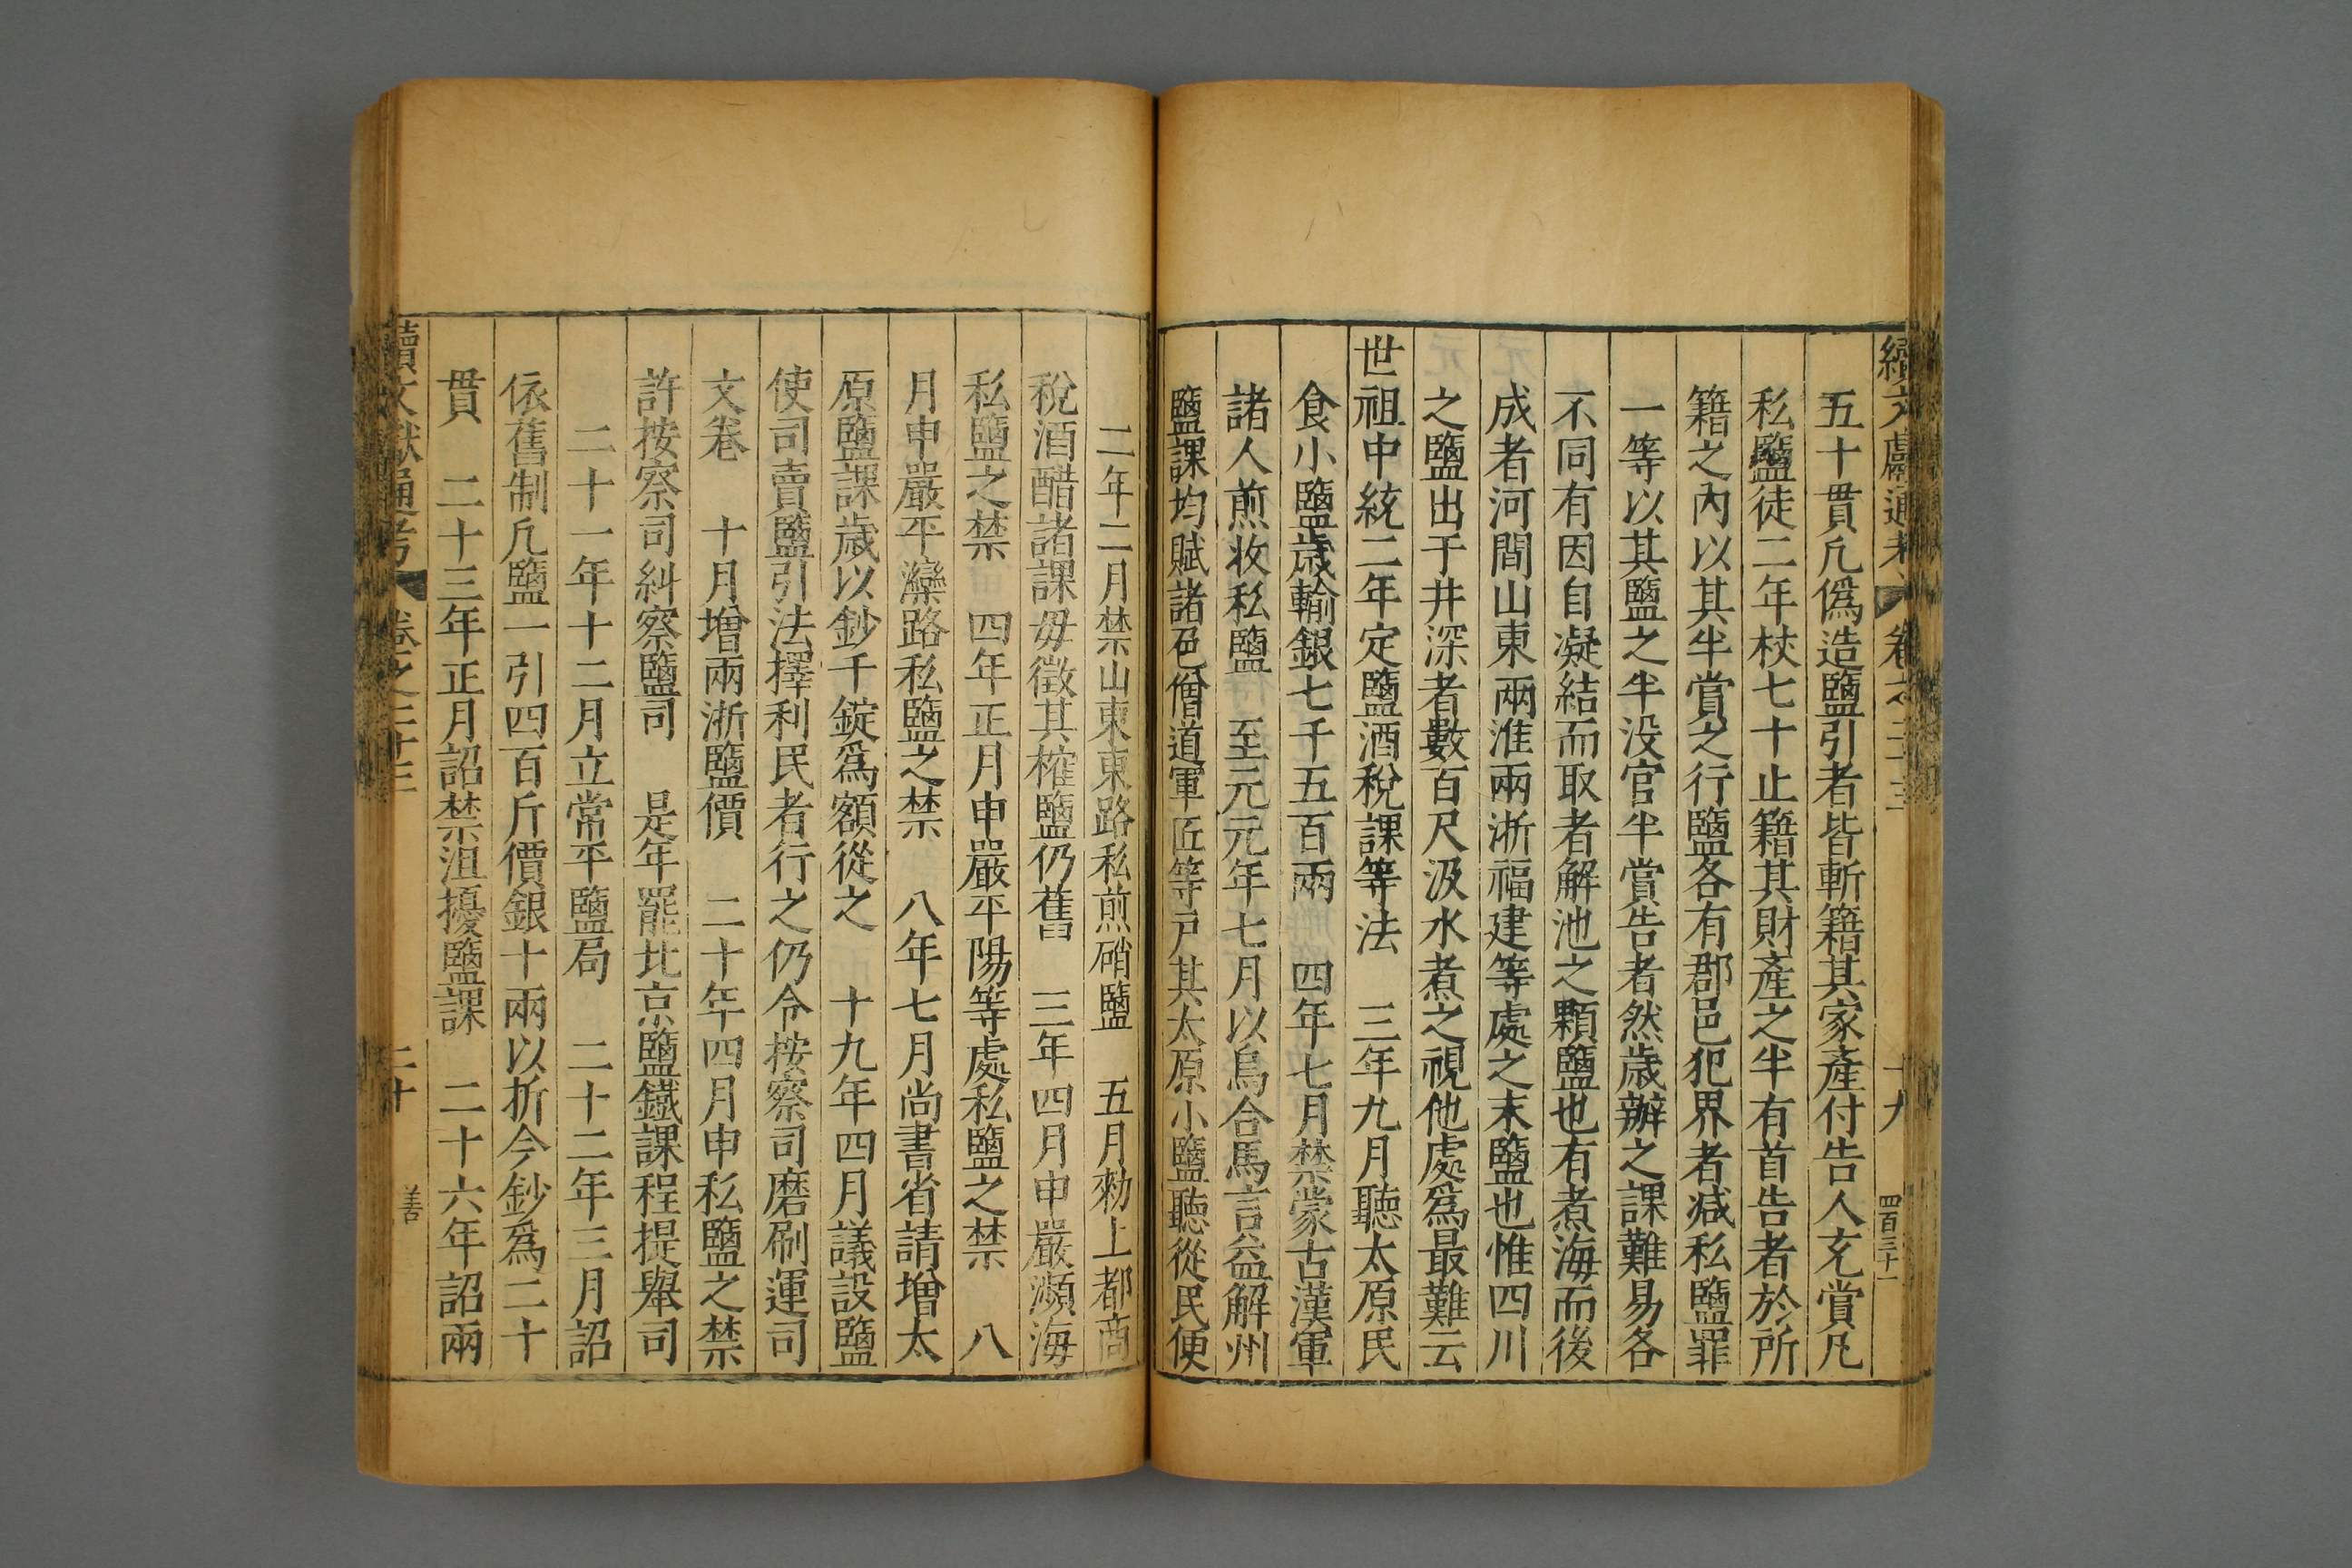 續文獻通考 卷之二十三 十九 四百三十一
五十貫凡僞造鹽引者皆斬籍其家產付告人充賞凡
私鹽徒二年杖七十止籍其財產之半有首告者於所
籍之內以其半賞之行鹽各有郡邑犯界者减私鹽罪
一等以其鹽之半没官半賞告者然歲辦之課難易各
不同有因自凝結而取者解池之顆鹽也有煮海而後
成者河間山東兩淮兩浙福建等處之末鹽也惟四川
之鹽出于井深者數百尺汲水煮之視他處爲最難云
世祖中統二年定鹽酒稅課等法 三年九月聽太原民
食小鹽歲輸銀七千五百兩 四年七月禁蒙古漢軍
諸人煎收私鹽 至元元年七月以烏合馬言益解州
鹽課均賦諸色僧道軍匠等戸其太原小鹽聽從民便
二年二月禁山東東路私煎硝鹽 五月勑上都商
稅酒醋諸課毋徵其榷鹽仍舊 三年四月申嚴瀕海
私鹽之禁 四年正月申嚴平陽等處私鹽之禁 八
月申嚴平灤路私鹽之禁 八年七月尚書省請增太
原鹽課歲以鈔千錠爲額從之 十九年四月議設鹽
使司賣鹽引法擇利民者行之仍令按察司磨刷運司
文卷 十月增兩浙鹽價 二十年四月申私鹽之禁
許按察司糾察鹽司 是年罷北京鹽鐵課程提舉司
二十一年十二月立常平鹽局 二十二年三月詔
依舊制凡鹽一引四百斤價銀十兩以折今鈔爲二十
貫 二十三年正月詔禁沮擾鹽課 二十六年詔兩
續文獻通考 卷之二十三 二十 善